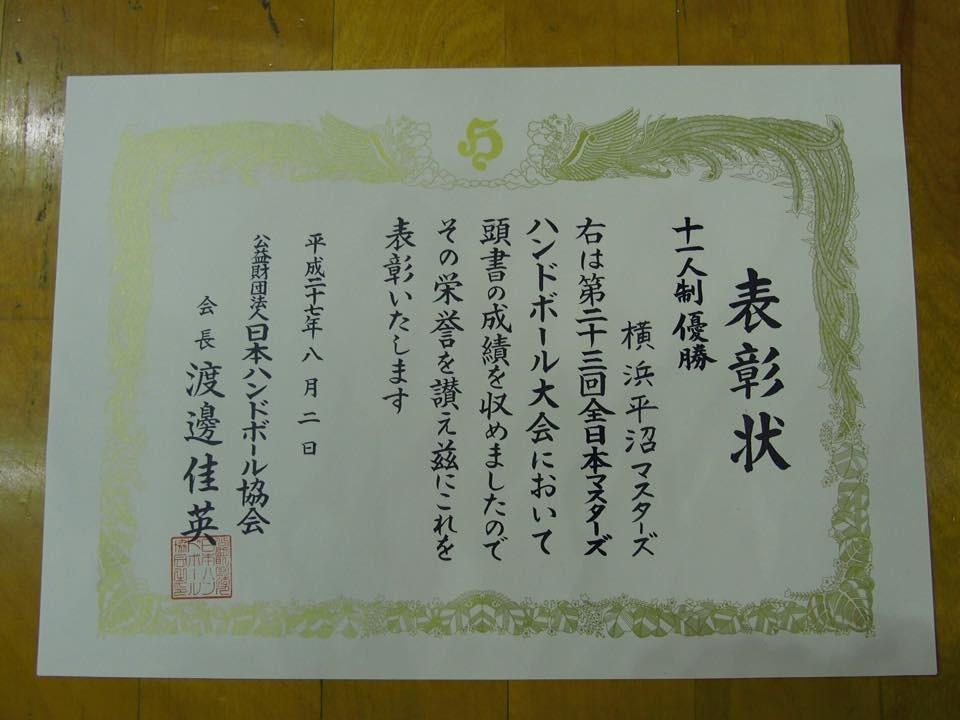 表彰状
十一人制優勝
横浜平沼マスターズ
右は第二十三回全日本マスターズ
ハンドボール大会において
頭書の成績を収めましたので
その栄誉を讃え茲にこれを
表彰いたします
平成二十七年八月二日
公益財団法人日本ハンドボール協会
会長 渡邊佳英